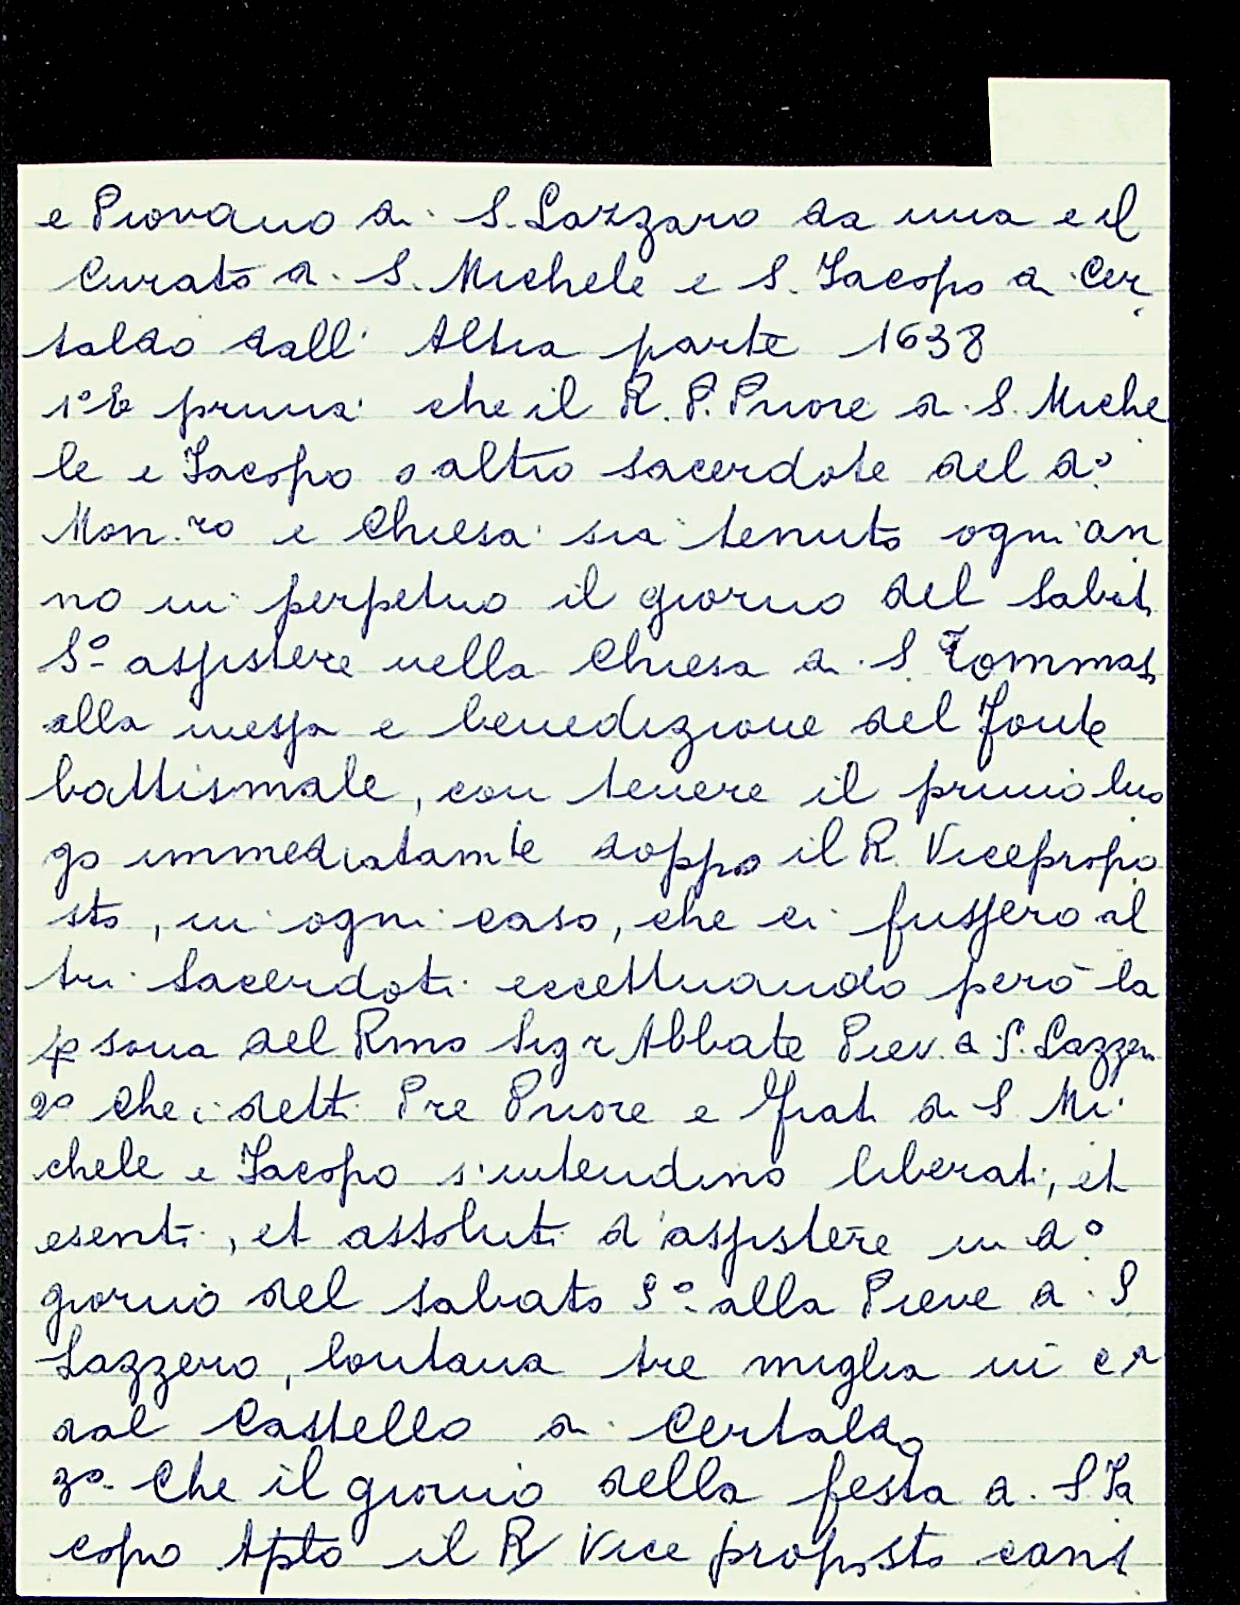 e Piovano di S. Lazzaro da una e il
Curato di S. Michele e S. Jacopo a Cer
taldo dall' Altra parte 1638
1º E prima che il R. P. Priore di S. Miche
le e Jacopo o altro sacerdote del dº
Mon.ro e Chiesa sia tenuto ogni an
no in perpetuo il giorno del Sabat
Sº assistere nella Chiesa di S Tommas
alla messa e benedizione del fonte
battismale, con tenere il primo luo
go immediatamte doppo il R. Vicepropo
sto, in ogni caso, che ci fussero al
tri Sacerdoti eccettuando però la
psona del Rmo Sigr Abbate Piev. a S. Lazzer
2º Che i detti Pre Priore e frati di S Mi
chele e Jacopo s'intendino liberati, et
esenti, et assoluti d'assistere in dº
giorno del sabato Sº alla Pieve a S
Lazzero, lontana tre miglia in ca
dal Castello di Certaldo
3º Che il giorno della festa a S Ja
copo Apto il R Vice proposto cant